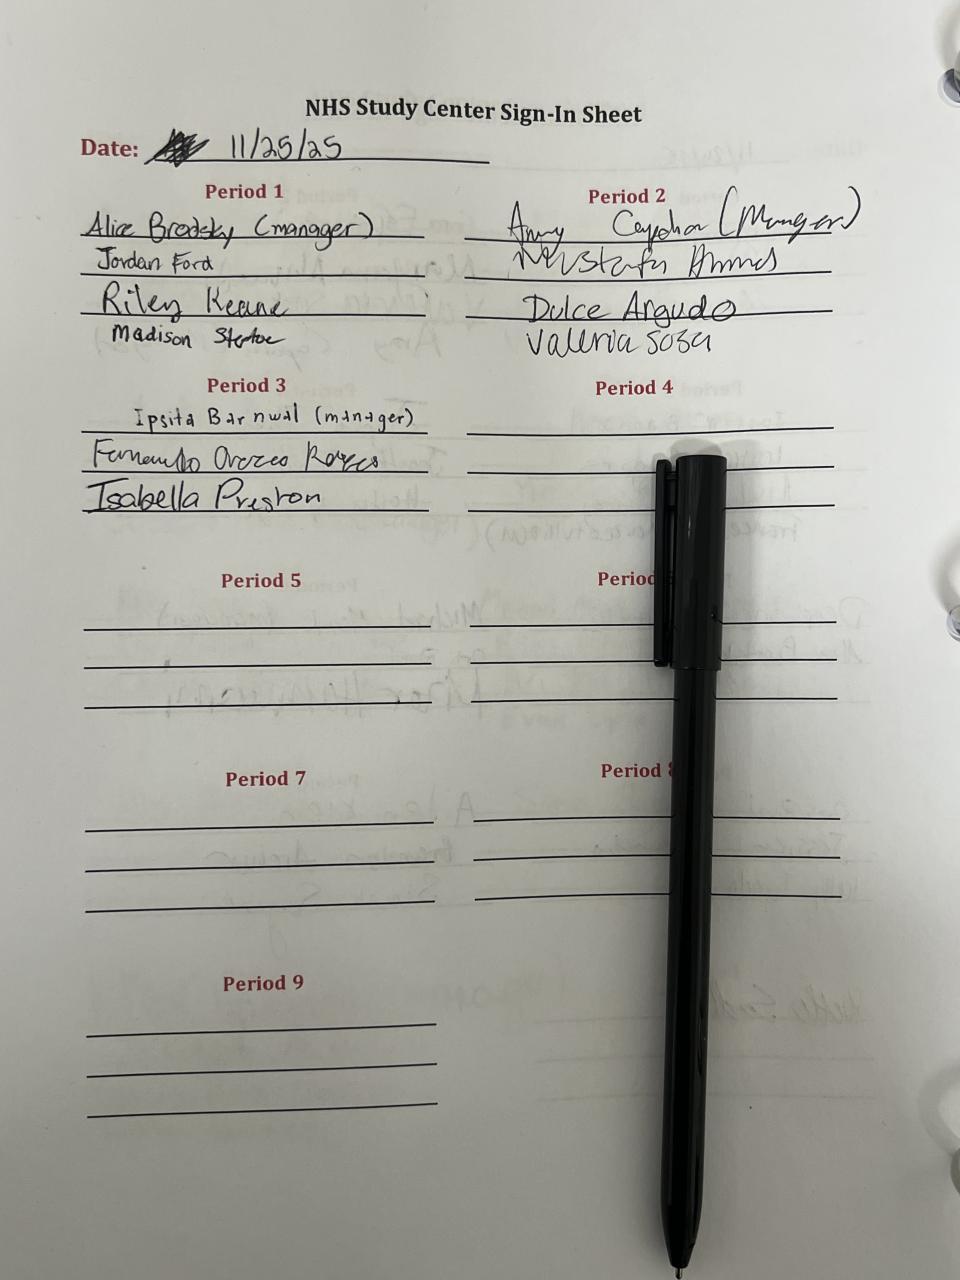 NHS Study Center Sign-In Sheet
Date: 11/25/25
Period 1
Alice Brodsky (manager)
Jordan Ford
Riley Keane
Madison
Period 2
Amy (Manager)
Ahmed
Dulce Argudo
Valeria Sosa
Period 3
Ipsita Barnwal (manager)
Fernando Orozco
Isabella Preston
Period 4
Period 5
Period
Period 7
Period 8
Period 9